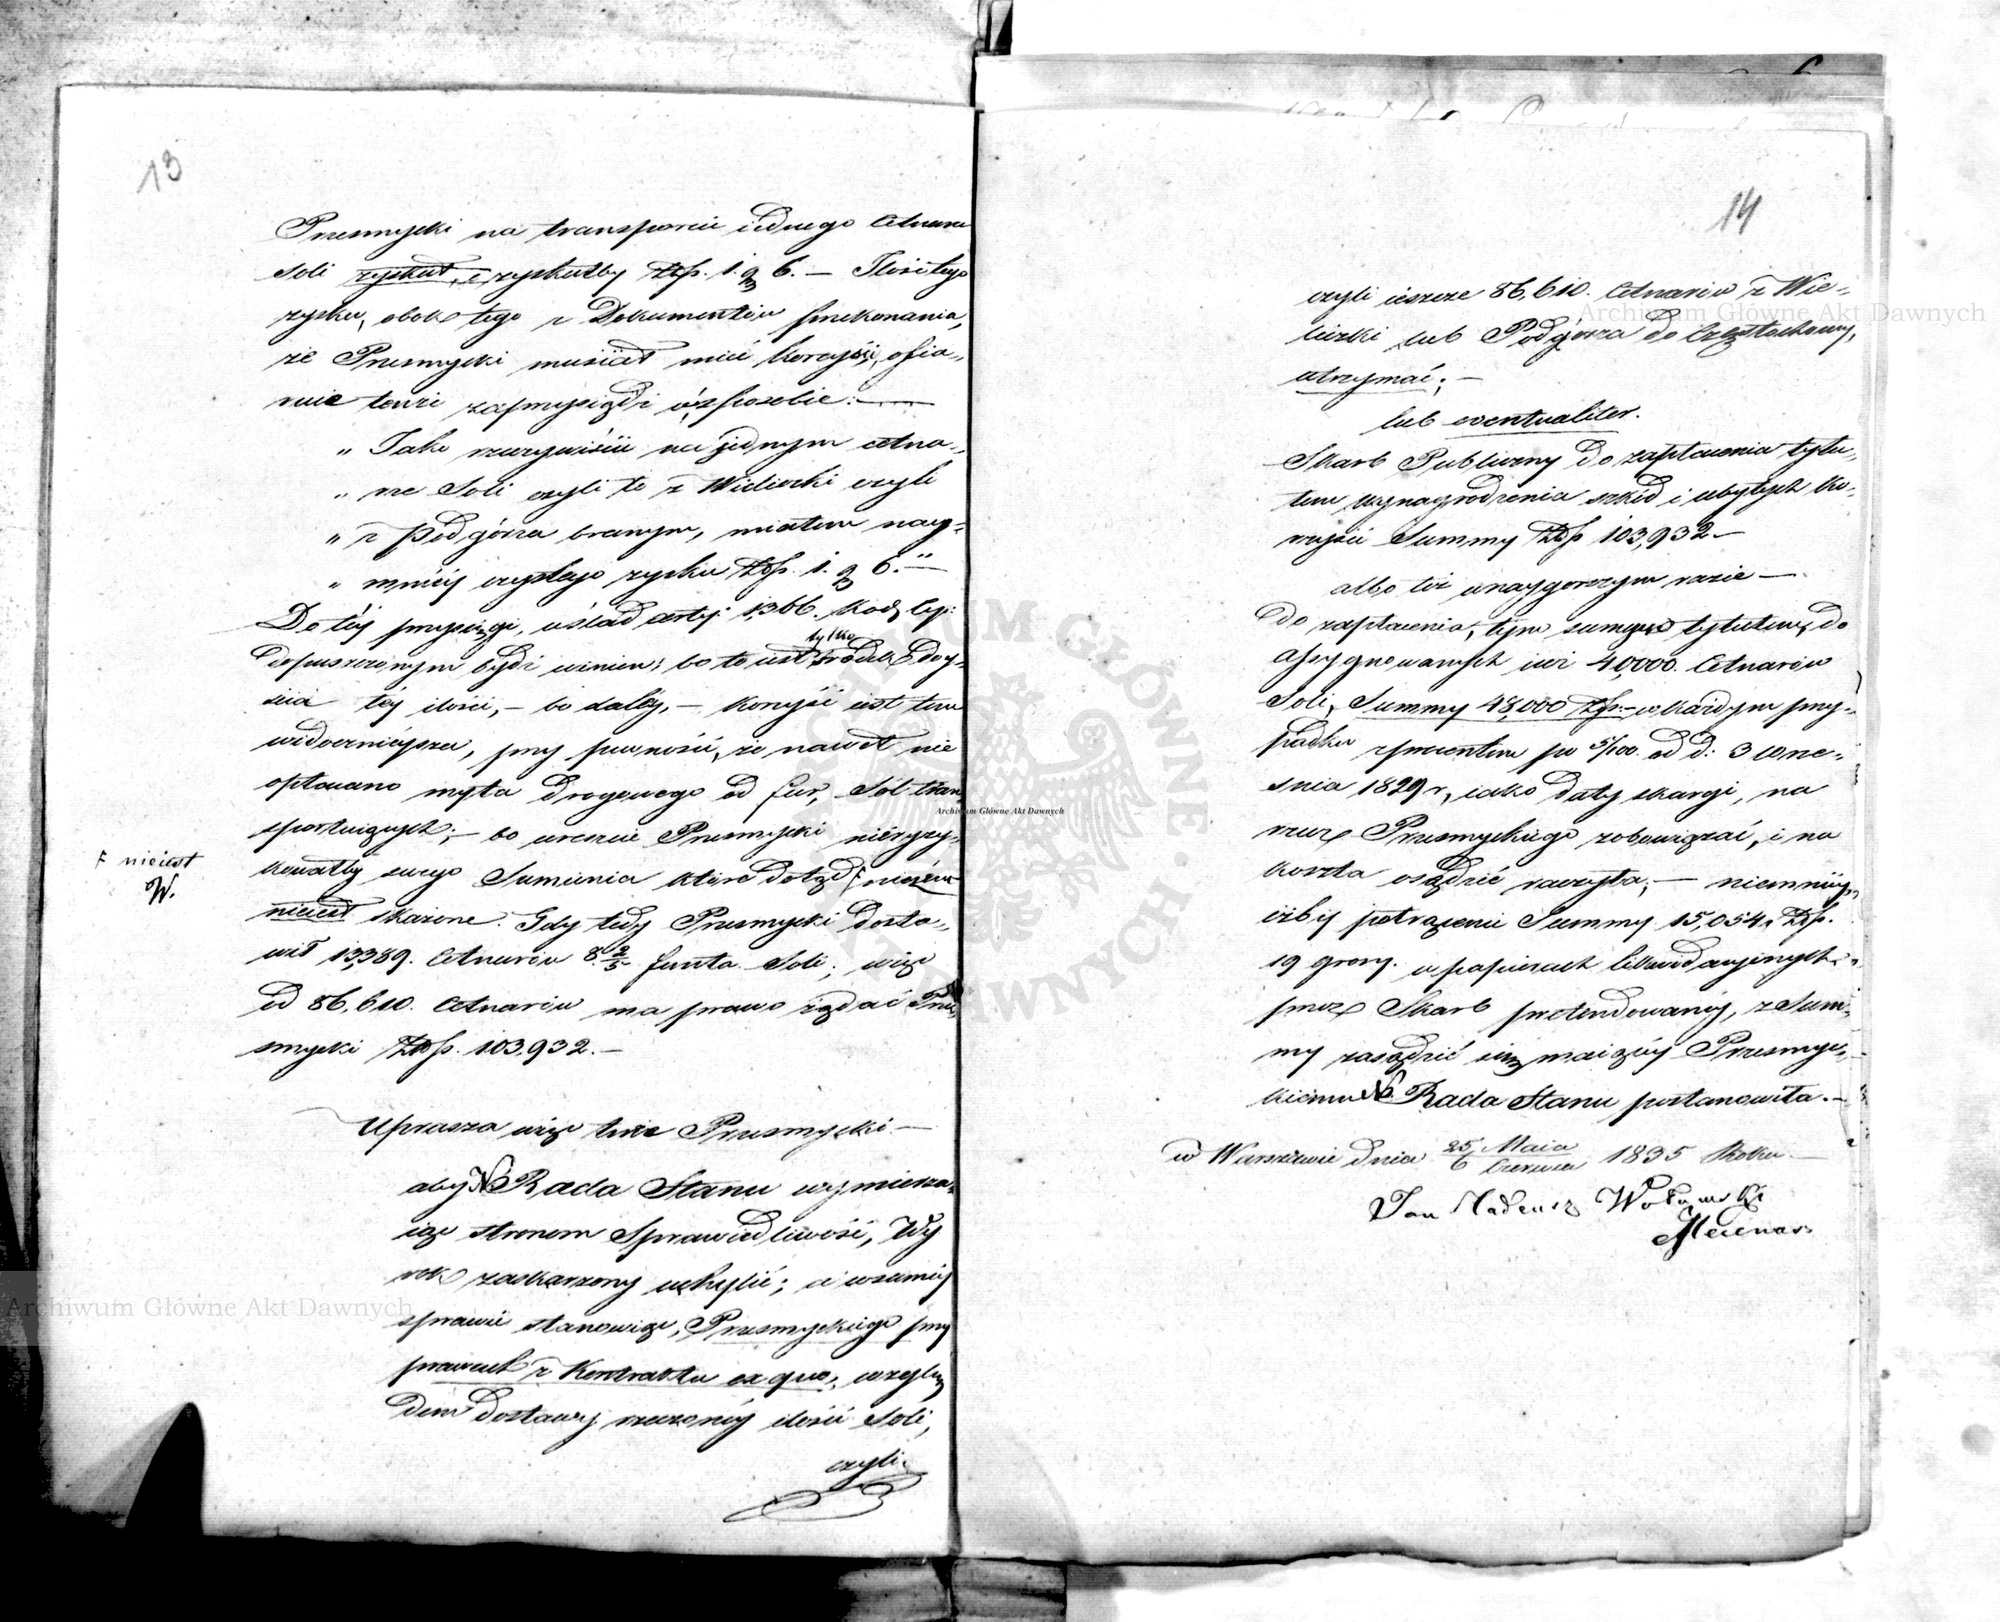 13
Przesmycki na transporcie iednego Cetnara
Soli zyskał, i zyskałby Złp. 1. g 6. — Ilości tego
zysku, obok tego z Dokumentów przekonania,
że Przesmycki musiał mieć korzyści, ofia-
ruie tenże zaprzysiądz w sposobie: —
„ Jako rzeczywiście na jednym cetna-
„ rze Soli czyli to z Wieliczki czyli
„ z Podgórza branym, miałem nay-
„ mniéj czystego zysku Złp. 1. g 6." —
Do téj przysięgi, w ślad arty: 1366. Kod: Cy:
dopuszczonym bydź winien; bo to iest tylko środek doy-
ścia téj ilości, — bo daléy, — korzyść iest tém
widocznieysza, przy pewności, że nawet nie
opłacano myta drogowego od fur, Sól tran-
sportuiących; — bo wreszcie Przesmycki nieryzy-
kowałby swego Sumienia które dotąd F niczém
nieiest skażone. Gdy tedy Przesmycki dosta-
wił 13,389. Cetnarów 8 2/5 funta Soli; więc
od 86,610. Cetnarów ma prawo żądać Prze-
smycki Złp. 103,932. —
F nieiest
W.
Uprasza więc tenże Przesmycki —
aby N. Rada Stanu wymierza-
iąc stronom Sprawiedliwość, Wy
rok zaskarzony uchylić; a w saméy
sprawie stanowiąc, Przesmyckiego przy
prawach z Kontraktu ex quo, wzglę-
dem dostawy rzeczonéy ilości Soli,
czyli
14
czyli ieszcze 86,610. Cetnarów z Wie-
liczki lub Podgórza do Częstochowy,
utrzymać; —
lub eventualiter.
Skarb Publiczny do zapłacenia tytu-
łem wynagrodzenia szkód i ubyłych ko-
rzyści Summy Złp 103,932 —
albo też w naygorszym razie —
do zapłacenia, tym samym tytułem, do
assygnowanych iuż 40,000. Cetnarów
Soli, Summy 48,000 Złp. — w każdym przy-
padku z procentem po 5/100. od d: 3 Wrze-
śnia 1829 r, iako daty skargi, na
rzecz Przesmyckiego zobowiązać, i na
koszta osądzić raczyła; — niemniéy
iżby potrącenie Summy 15,054 Złp.
19 groszy. w papierach likwidacyinych
przez Skarb pretendowanéy, z Sum-
my zasądzić się maiącéy Przesmyc-
kiemu N. Rada Stanu postanowiła. —
w Warszawie dnia 25/6 Maia/Czerwca 1835 Roku —
Jan Tadeusz Wołowski
Mecenas
Archiwum Główne Akt Dawnych
Archiwum Główne Akt Dawnych
Archiwum Główne Akt Dawnych